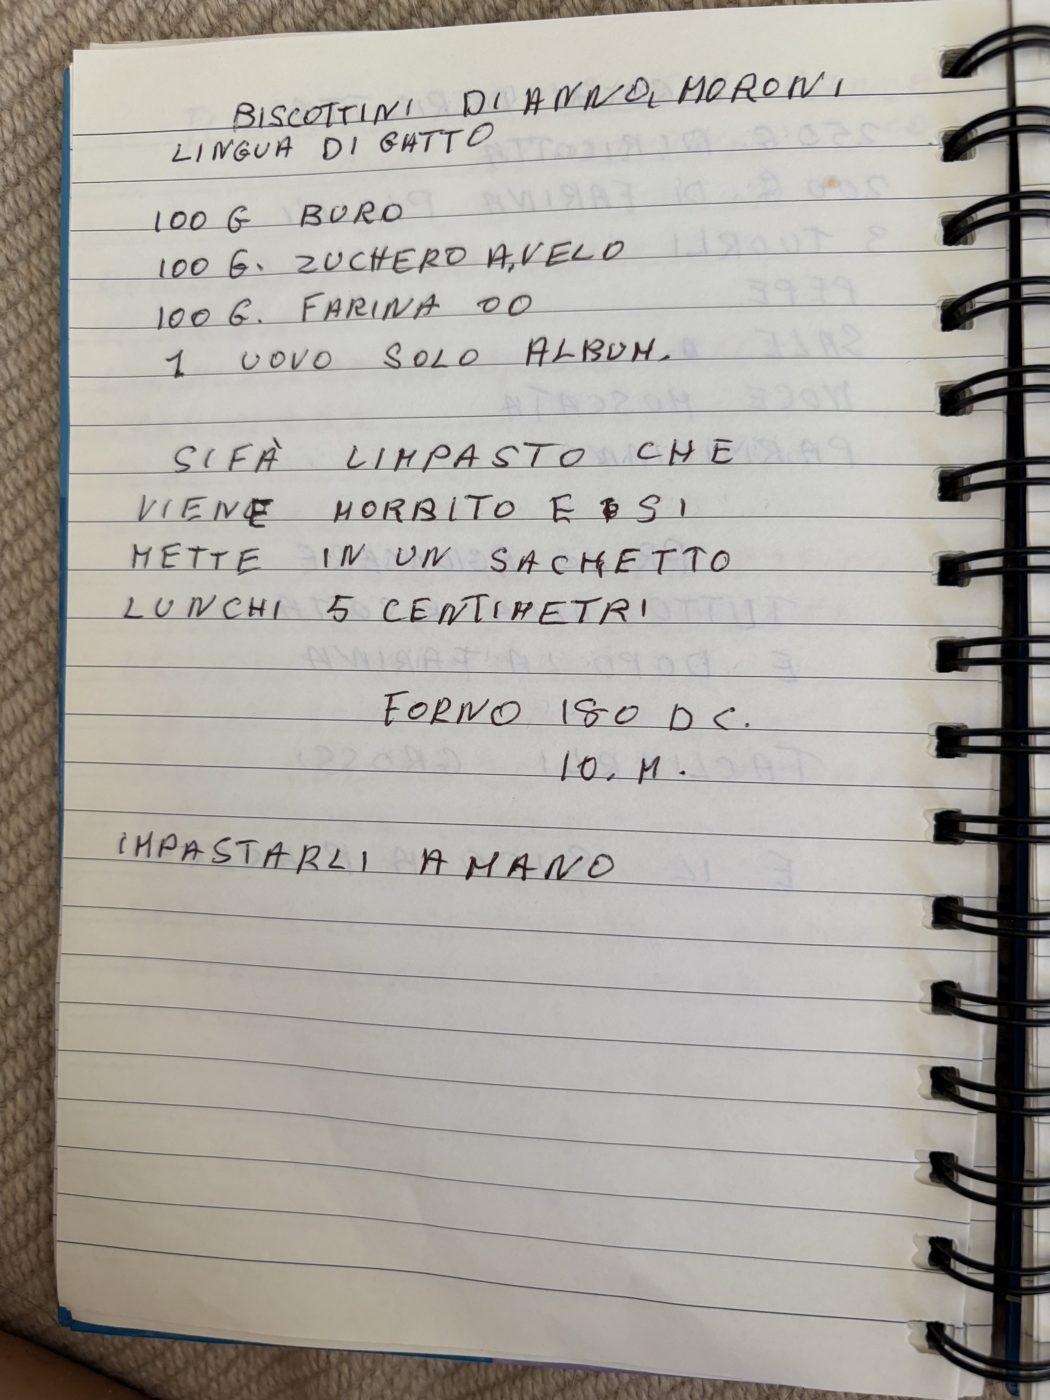 BISCOTTINI DI ANNO, MORONI
LINGUA DI GATTO
100 G BURO
100 G. ZUCHERO A,VELO
100 G. FARINA 00
1 UOVO SOLO ALBUM.
SIFÀ LIMPASTO CHE
VIENE MORBITO E SI
METTE IN UN SACHETTO
LUNCHI 5 CENTIMETRI
FORNO 180 D C.
10. M.
IMPASTARLI A MANO